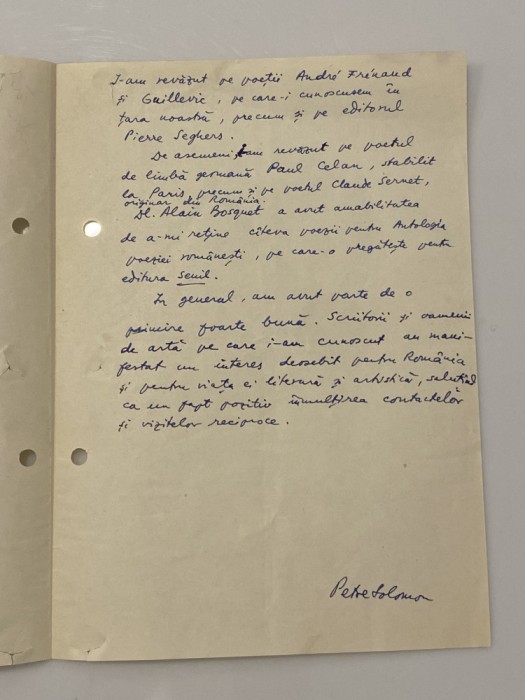 I-am revăzut pe poeții André Frénaud
și Guillevic, pe care-i cunoscusem în
țara noastră, precum și pe editorul
Pierre Seghers.
De asemeni i-am revăzut pe poetul
de limbă germană Paul Celan, stabilit
la Paris, precum și pe poetul Claude Sernet,
originar din România.
Dl. Alain Bosquet a avut amabilitatea
de a-mi reține cîteva poezii pentru Antologia
poeziei românești, pe care-o pregătește pentru
editura Seuil.
In general, am avut parte de o
primire foarte bună. Scriitorii și oamenii
de artă pe care i-am cunoscut au mani-
festat un interes deosebit pentru România
și pentru viața ei literară și artistică, salutînd
ca un fapt pozitiv înmulțirea contactelor
și vizitelor reciproce.
Petre Solomon